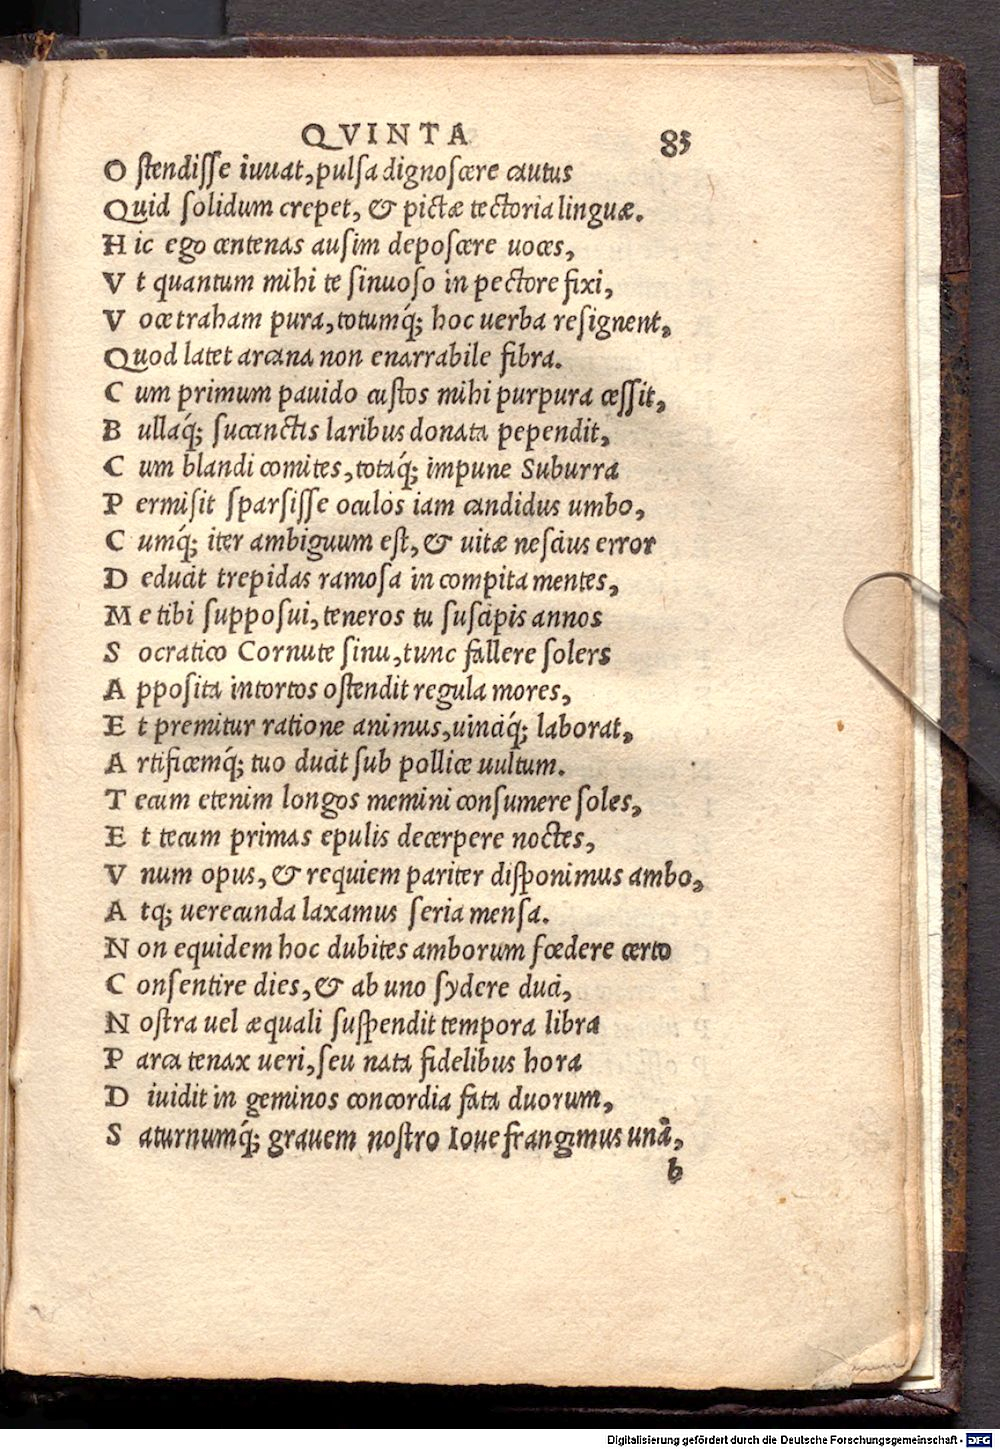 QVINTA 85
O stendisse iuuat, pulsa dignoscere cautus
Quid solidum crepet, & pictæ tectoria linguæ.
H ic ego centenas ausim deposcere uoces,
V t quantum mihi te sinuoso in pectore fixi,
V oce traham pura, totumq́; hoc uerba resignent,
Quod latet arcana non enarrabile fibra.
C um primum pauido custos mihi purpura cessit,
B ullaq́; succinctis laribus donata pependit,
C um blandi comites, totaq́; impune Suburra
P ermisit sparsisse oculos iam candidus umbo,
C umq́; iter ambiguum est, & uitæ nescius error
D educit trepidas ramosa in compita mentes,
M e tibi supposui, teneros tu suscipis annos
S ocratico Cornute sinu, tunc fallere solers
A pposita intortos ostendit regula mores,
E t premitur ratione animus, uinciq́; laborat,
A rtificemq́; tuo ducit sub pollice uultum.
T ecum etenim longos memini consumere soles,
E t tecum primas epulis decerpere noctes,
V num opus, & requiem pariter disponimus ambo,
A tq; uerecunda laxamus seria mensa.
N on equidem hoc dubites amborum fœdere certo
C onsentire dies, & ab uno sydere duci,
N ostra uel æquali suspendit tempora libra
P arca tenax ueri, seu nata fidelibus hora
D iuidit in geminos concordia fata duorum,
S aturnumq́; grauem nostro Ioue frangimus unâ,
b
Digitalisierung gefördert durch die Deutsche Forschungsgemeinschaft - DFG